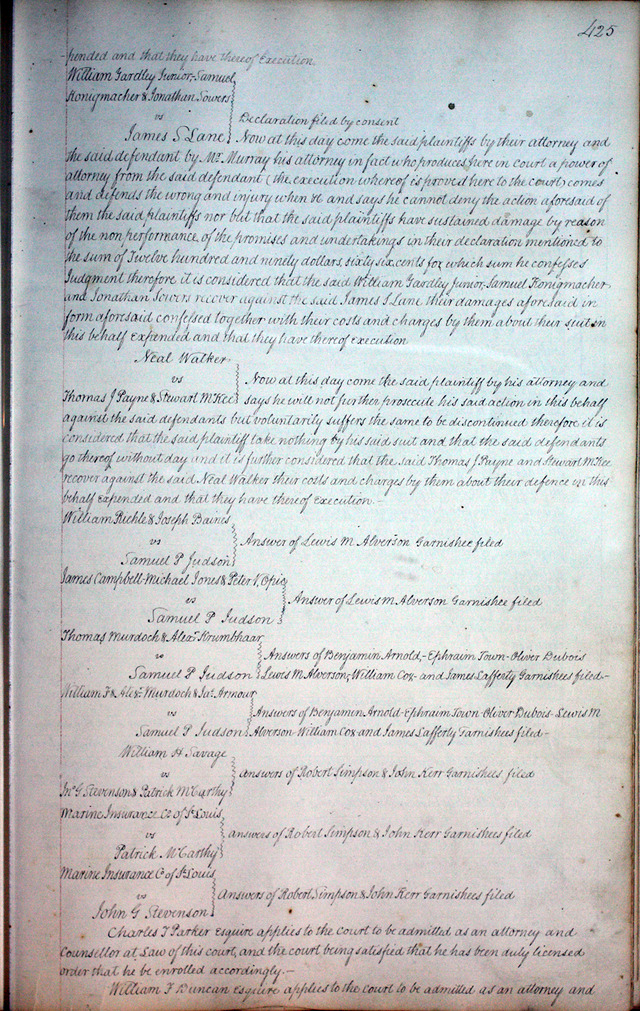 425
pended and that they have thereof Execution.
William Yardley Junior, Samuel
Konigmacher & Jonathan Sowers
vs
Declaration filed by consent
James S Lane
Now at this day come the said plaintiffs by their attorney and
the said defendant by Mr. Murray his attorney in fact who produces here in court a power of
attorney from the said defendant (the execution whereof is proved here to the court) comes
and defends the wrong and injury when &c and says he cannot deny the action aforesaid of
them the said plaintiffs nor but that the said plaintiffs have sustained damage by reason
of the non performance of the promises and undertakings in their declaration mentioned to
the sum of Twelve hundred and ninety dollars, sixty six cents for which sum he confesses
Judgment therefore it is considered that the said William Yardley Junior, Samuel Konigmacher
and Jonathan Sowers recover against the said James S Lane their damages aforesaid in
form aforesaid confessed together with their costs and charges by them about their suit in
this behalf expended and that they have thereof execution
Neal Walker
vs
Now at this day come the said plaintiff by his attorney and
Thomas J Payne & Stewart McKee
says he will not further prosecute his said action in this behalf
against the said defendants but voluntarily suffers the same to be discontinued therefore it is
considered that the said plaintiff take nothing by his said suit and that the said defendants
go thereof without day and it is further considered that the said Thomas J Payne and Stewart McKee
recover against the said Neal Walker their costs and charges by them about their defence in this
behalf Expended and that they have thereof Execution.-
William & Joseph
vs
Answer of Lewis M Alverson Garnishee filed
Samuel P Judson
James Campbell, Michael Jones & Peter V.
vs
Answer of Lewis M Alverson Garnishee filed
Samuel P Judson
Thomas Murdoch & Alexr. Krumbhaar
vs
Answers of Benjamin Arnold,- Ephraim Town- Oliver Dubois
Samuel P Judson
Lewis M Alverson, William Cox- and James Lafferty Garnishees filed.-
William F & Alexr. Murdoch & Jas. Armour
vs
Answers of Benjamin Arnold- Ephraim Town Oliver Dubois- Lewis M
Samuel P Judson
Alverson- William Cox- and James Lafferty Garnishees filed-
William H Savage
vs
answers of Robert Simpson & John Kerr Garnishees filed
Jno. G Stevenson & Patrick McCarthy
Marine Insurance Co of St. Louis
vs
answers of Robert Simpson & John Kerr Garnishees filed
Patrick McCarthy
Marine Insurance Co. of St Louis
vs
Answers of Robert Simpson & John Kerr Garnishees filed
John G Stevenson
Charles T Parker Esquire applies to the court to be admitted as an attorney and
Counsellor at Law of this court, and the court being satisfied that he has been duly licensed
order that he be enrolled accordingly.-
William F Duncan Esquire applies to the court to be admitted as an attorney and